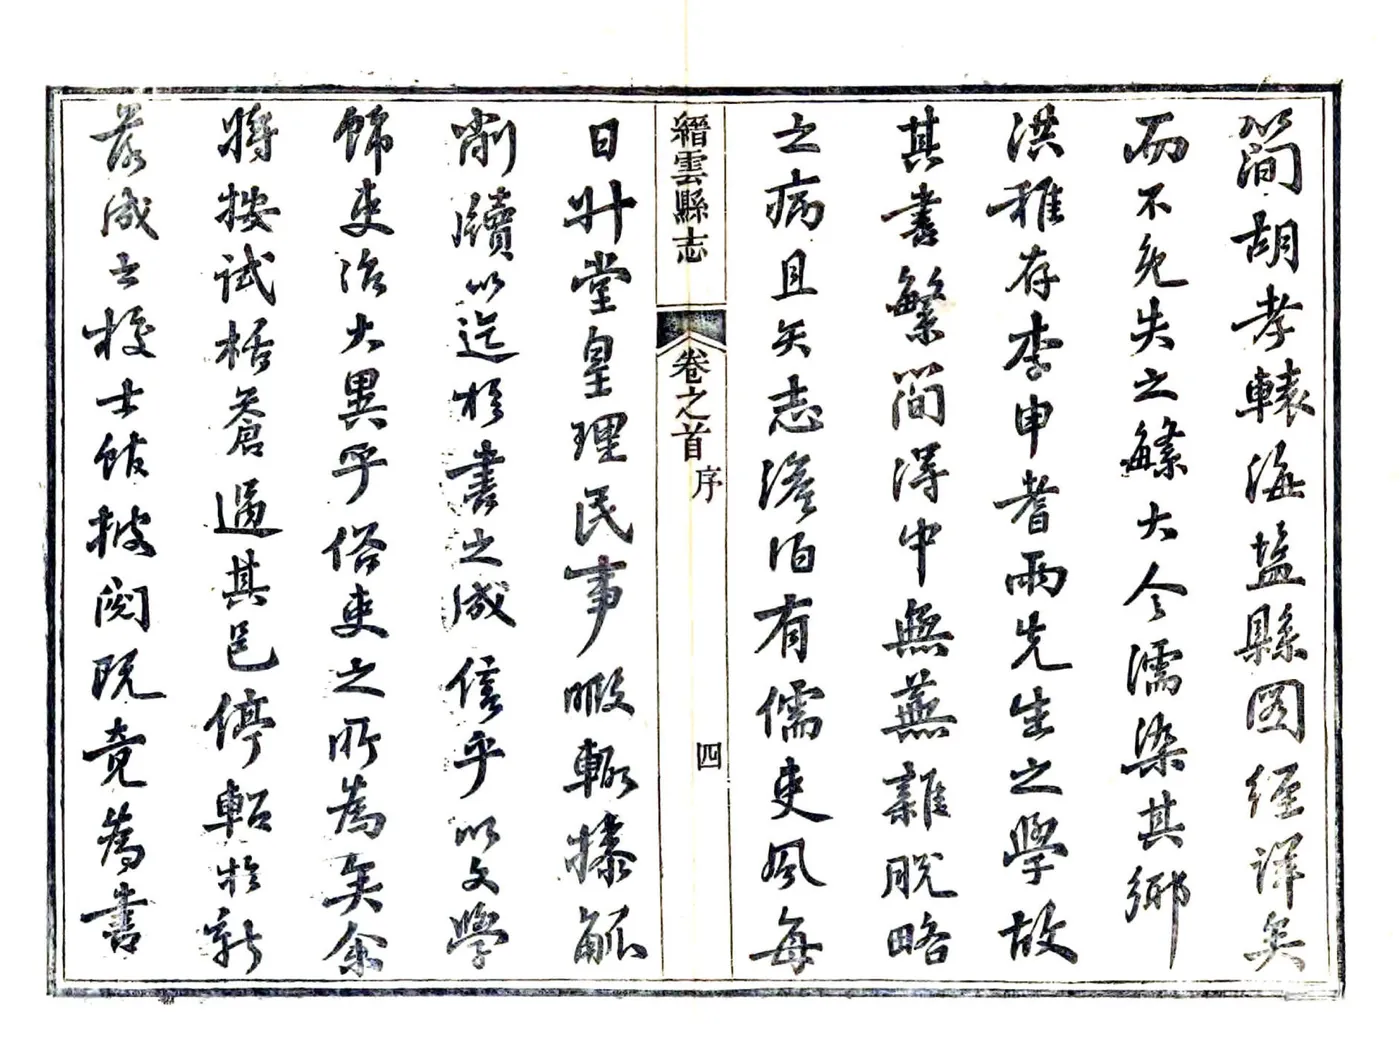 簡胡孝轅海塩縣圖經詳矣
而不免失之繁大令濡染其鄉
洪稚存李申耆兩先生之學故
其書繁簡得中無蕪雜脫略
之病且矢志澹泊有儒吏風每
縉雲縣志
卷之首
序
四
日升堂皇理民事暇輒操觚
削牘以迄於書之成信乎以文學
飾吏治大異乎俗吏之所為矣余
將按試栝蒼過其邑停軺於新
落成之校士館披閱既竟為書